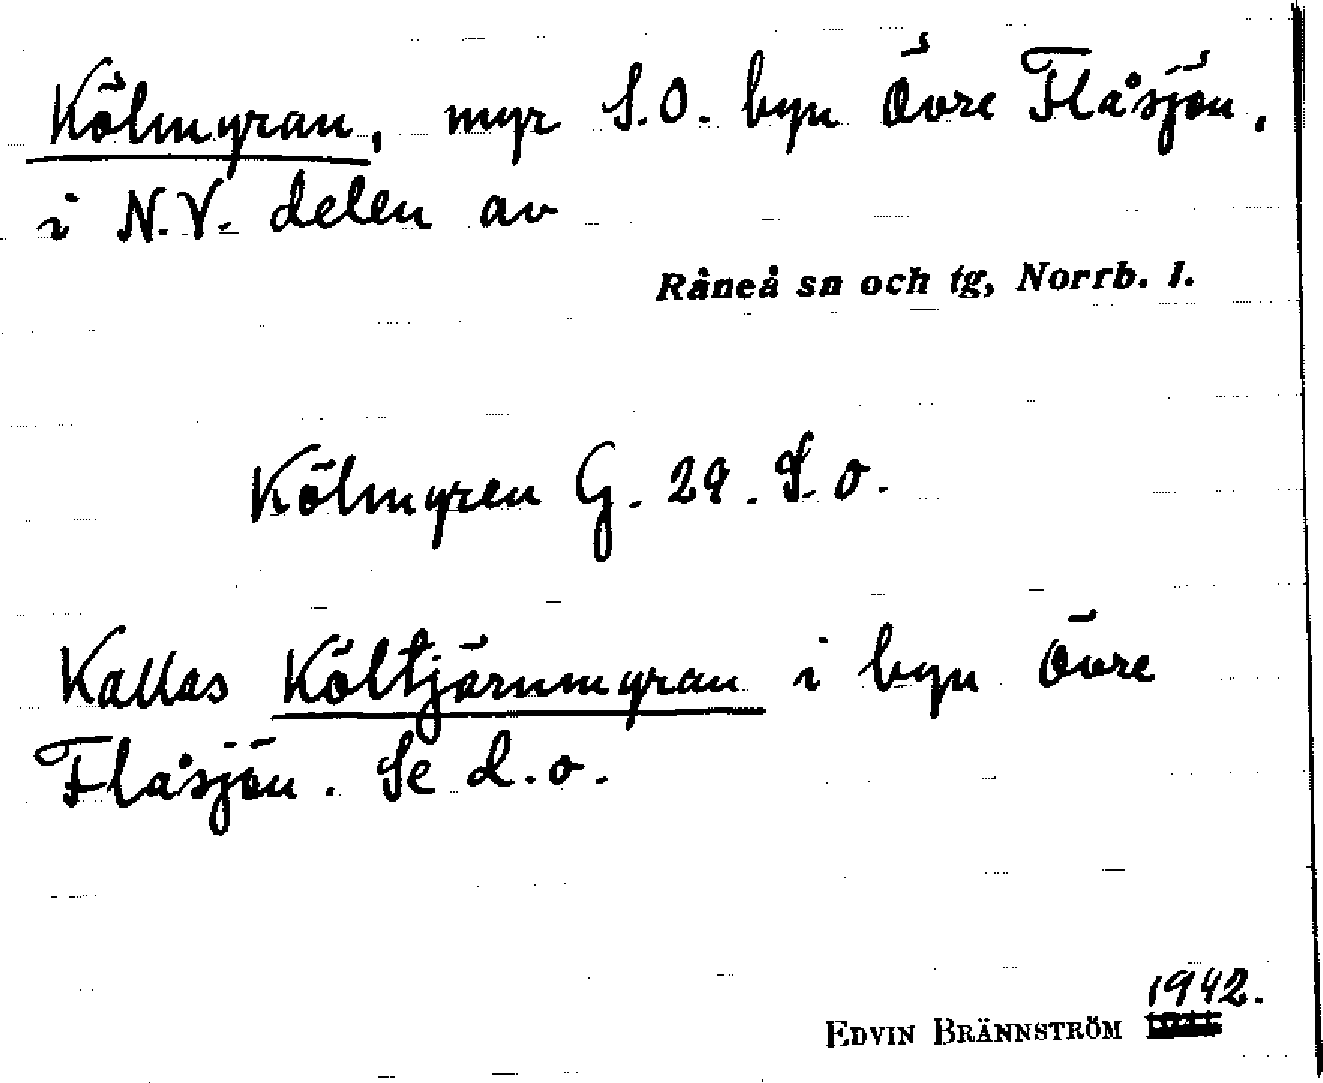 Kölmyran, myr S.O. byn Övre Flåsjön,
i N.V. delen av
Råneå sn och tg, Norrb. l.
Kölmyren G. 29. S. o.
Kallas Költjärnmyran i byn Övre
Flåsjön. Se d.o.
1942.
EDVIN BRÄNNSTRÖM